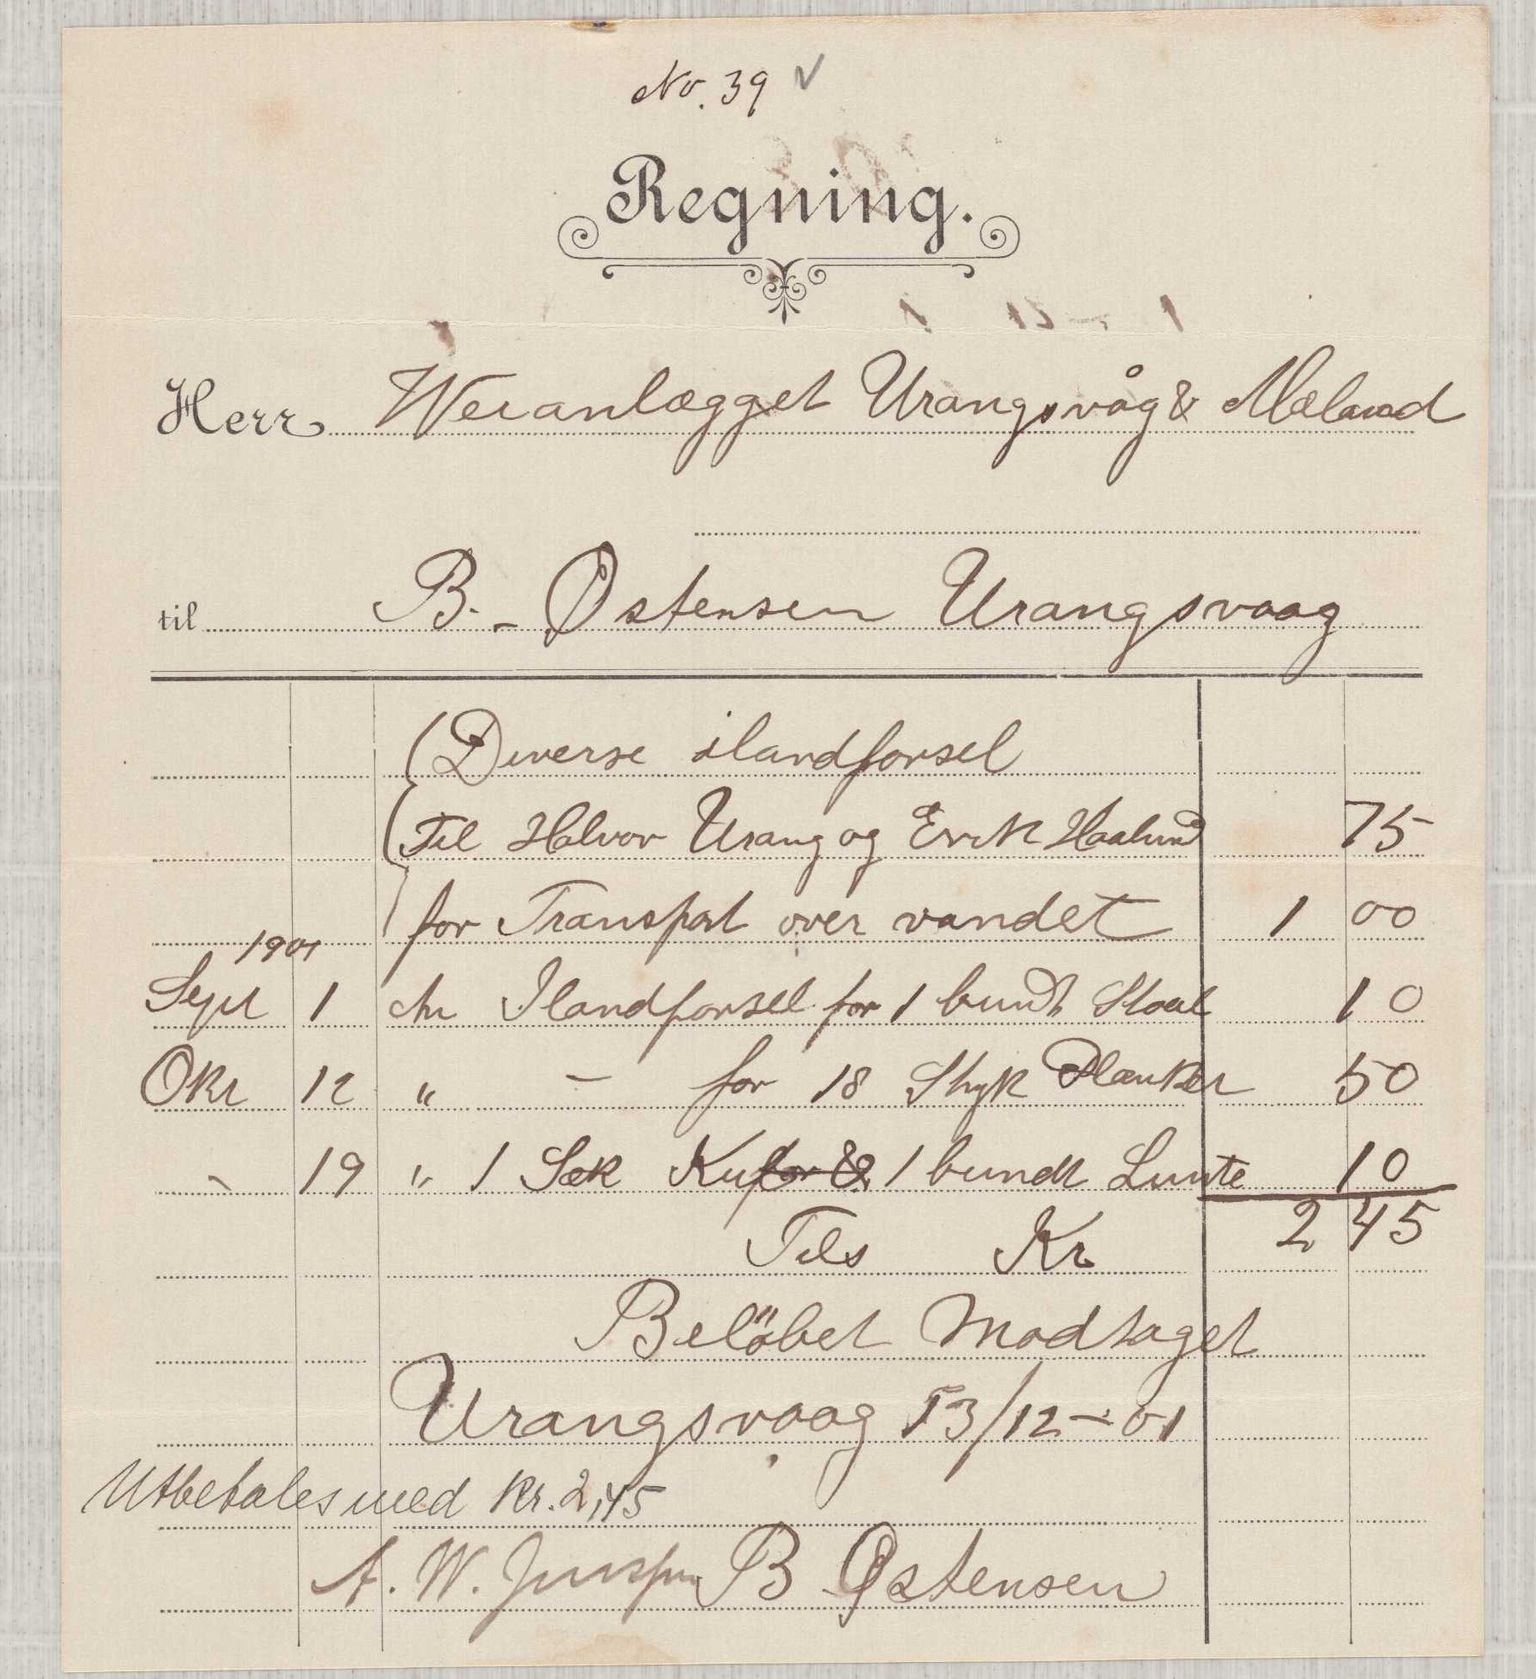 No. 39 ✓
Regning.
Herr Weianlægget Urangsvåg & Mæland
til B. - Østensen Urangsvaag
Diverse ilandforsel
Til Halvor Urang og Erik Haaland 75
for Transport over vandet 1 00
1901
Sept 1 An Ilandforsel for 1 bundt Staal 10
Okr 12 " - for 18 Styk Planker 50
" 19 " 1 Sæk Kufor & 1 bundt Lunte 10
Tils Kr 2 45
Beløbet Modtaget
Urangsvaag 13/12-01
Utbetales med Kr. 2,45
A. W. B Østensen